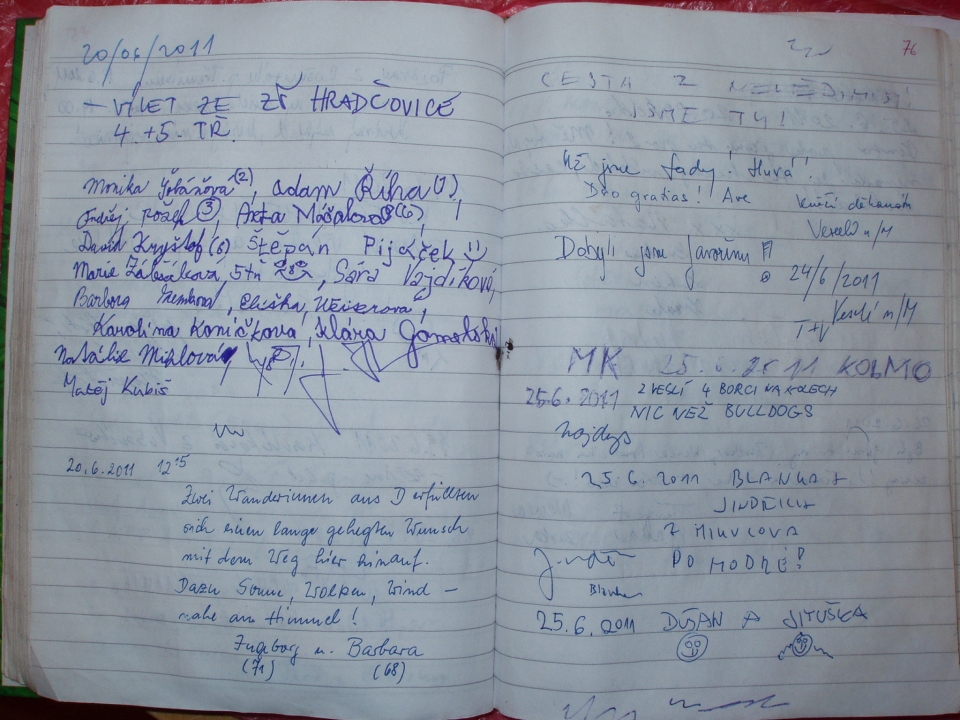 20/06/2011
- VÝLET ZE ZŠ HRADČOVICE
4. +5. TŘ.
Monika (2), Adam Říha (1),
Ondřej (3), Aneta
David Kryštof (6) Štěpán Pijáček
Marie, Sára Vajdíková,
Barbora, Eliška,
Karolína Koníčková, Klára
Natálie Miklová
Matěj Kubiš
20.6.2011 12 15
Zwei Wanderinnen aus D erfüllten
sich einen lange gehegten Wunsch
mit dem Weg hier hinauf.
Dazu Sonne, Wolken, Wind –
nahe am Himmel!
Ingeborg u. Barbara
(71) (68)
76
CESTA Z
JSME TU!
Už jsme tady!
Deo gratias! Ave
Veselí n/M
Dobyli jsme Javořinu
24/6/2011
Veselí n/M
T+V
MK 25.6.2011 KOLMO
25.6.2011 Z VESLÍ 4 BORCI NA KOLECH
NIC NEŽ BULLDOGS
25.6.2011 BLANKA +
JINDŘICH
Z
PO MODRÉ!
25.6.2011 DUŠAN A JITUŠKA